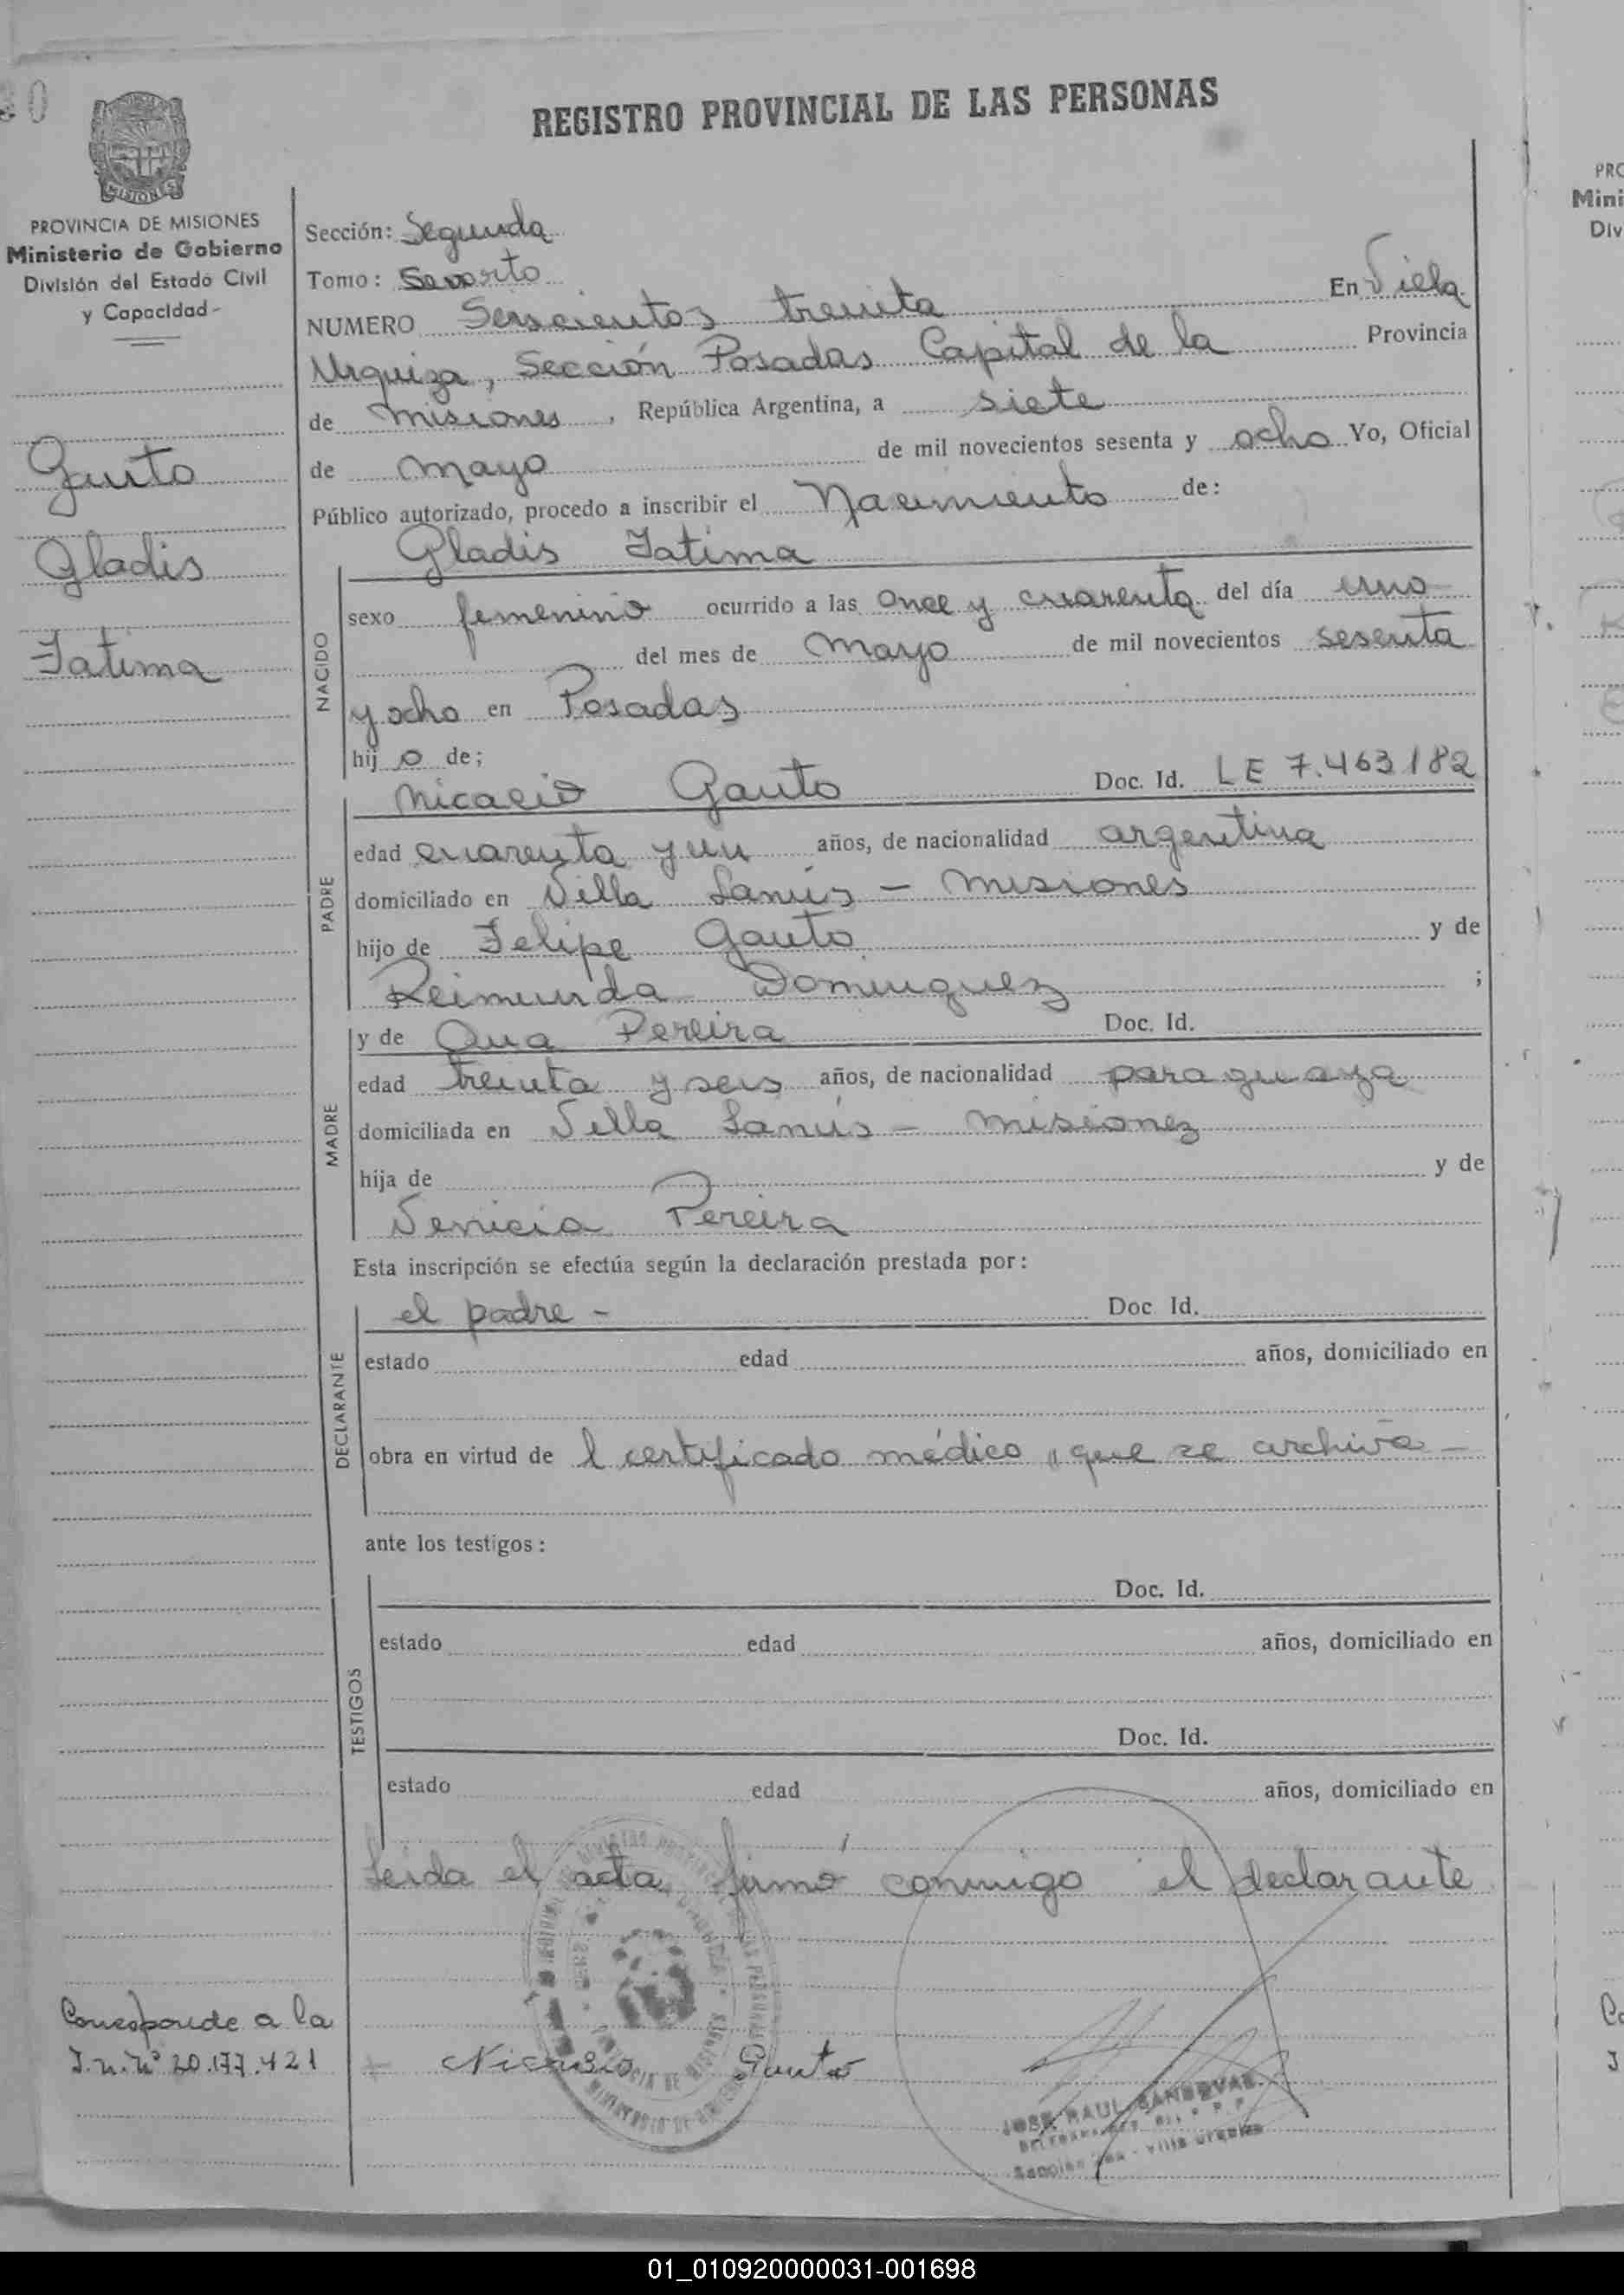 REGISTRO PROVINCIAL DE LAS PERSONAS
MISIONES
PROVINCIA DE MISIONES
Ministerio de Gobierno
División del Estado Civil
y Capacidad-
Gauto
Gladis
Fatima
Sección: Segunda
Tomo:
NUMERO Seiscientos treinta En Viela
Urquiza, Sección Posadas Capital de la Provincia
de misiones, República Argentina, a siete
de mayo de mil novecientos sesenta y ocho Yo, Oficial
Público autorizado, procedo a inscribir el Nacimiento de:
Gladis Fatima
NACIDO
sexo femenino ocurrido a las once y cuarenta del día uno
del mes de mayo de mil novecientos sesenta
y ocho en Posadas
hij o de;
PADRE
Nicacio Gauto Doc. Id. LE 7.463182
edad cuarenta y un años, de nacionalidad argentina
domiciliado en Villa Lanús - misiones
hijo de Felipe Gauto y de
Reimunda Dominguez ;
MADRE
y de Ana Pereira Doc. Id.
edad treinta y seis años, de nacionalidad paraguaya
domiciliada en Villa Lanús - misionez
hija de y de
Venicia Pereira
Esta inscripción se efectúa según la declaración prestada por:
DECLARANTE
el padre - Doc Id.
estado edad años, domiciliado en
obra en virtud de l certificado médico, que se archiva -
ante los testigos:
TESTIGOS
Doc. Id.
estado edad años, domiciliado en
Doc. Id.
estado edad años, domiciliado en
Leida el acta, firmó conmigo el declarante
Corresponde a la
I.n.n° 20.177.421
Nicasio Gauto
JOSE RAUL SANDOVAL
Villa Urquiza
01_010920000031-001698